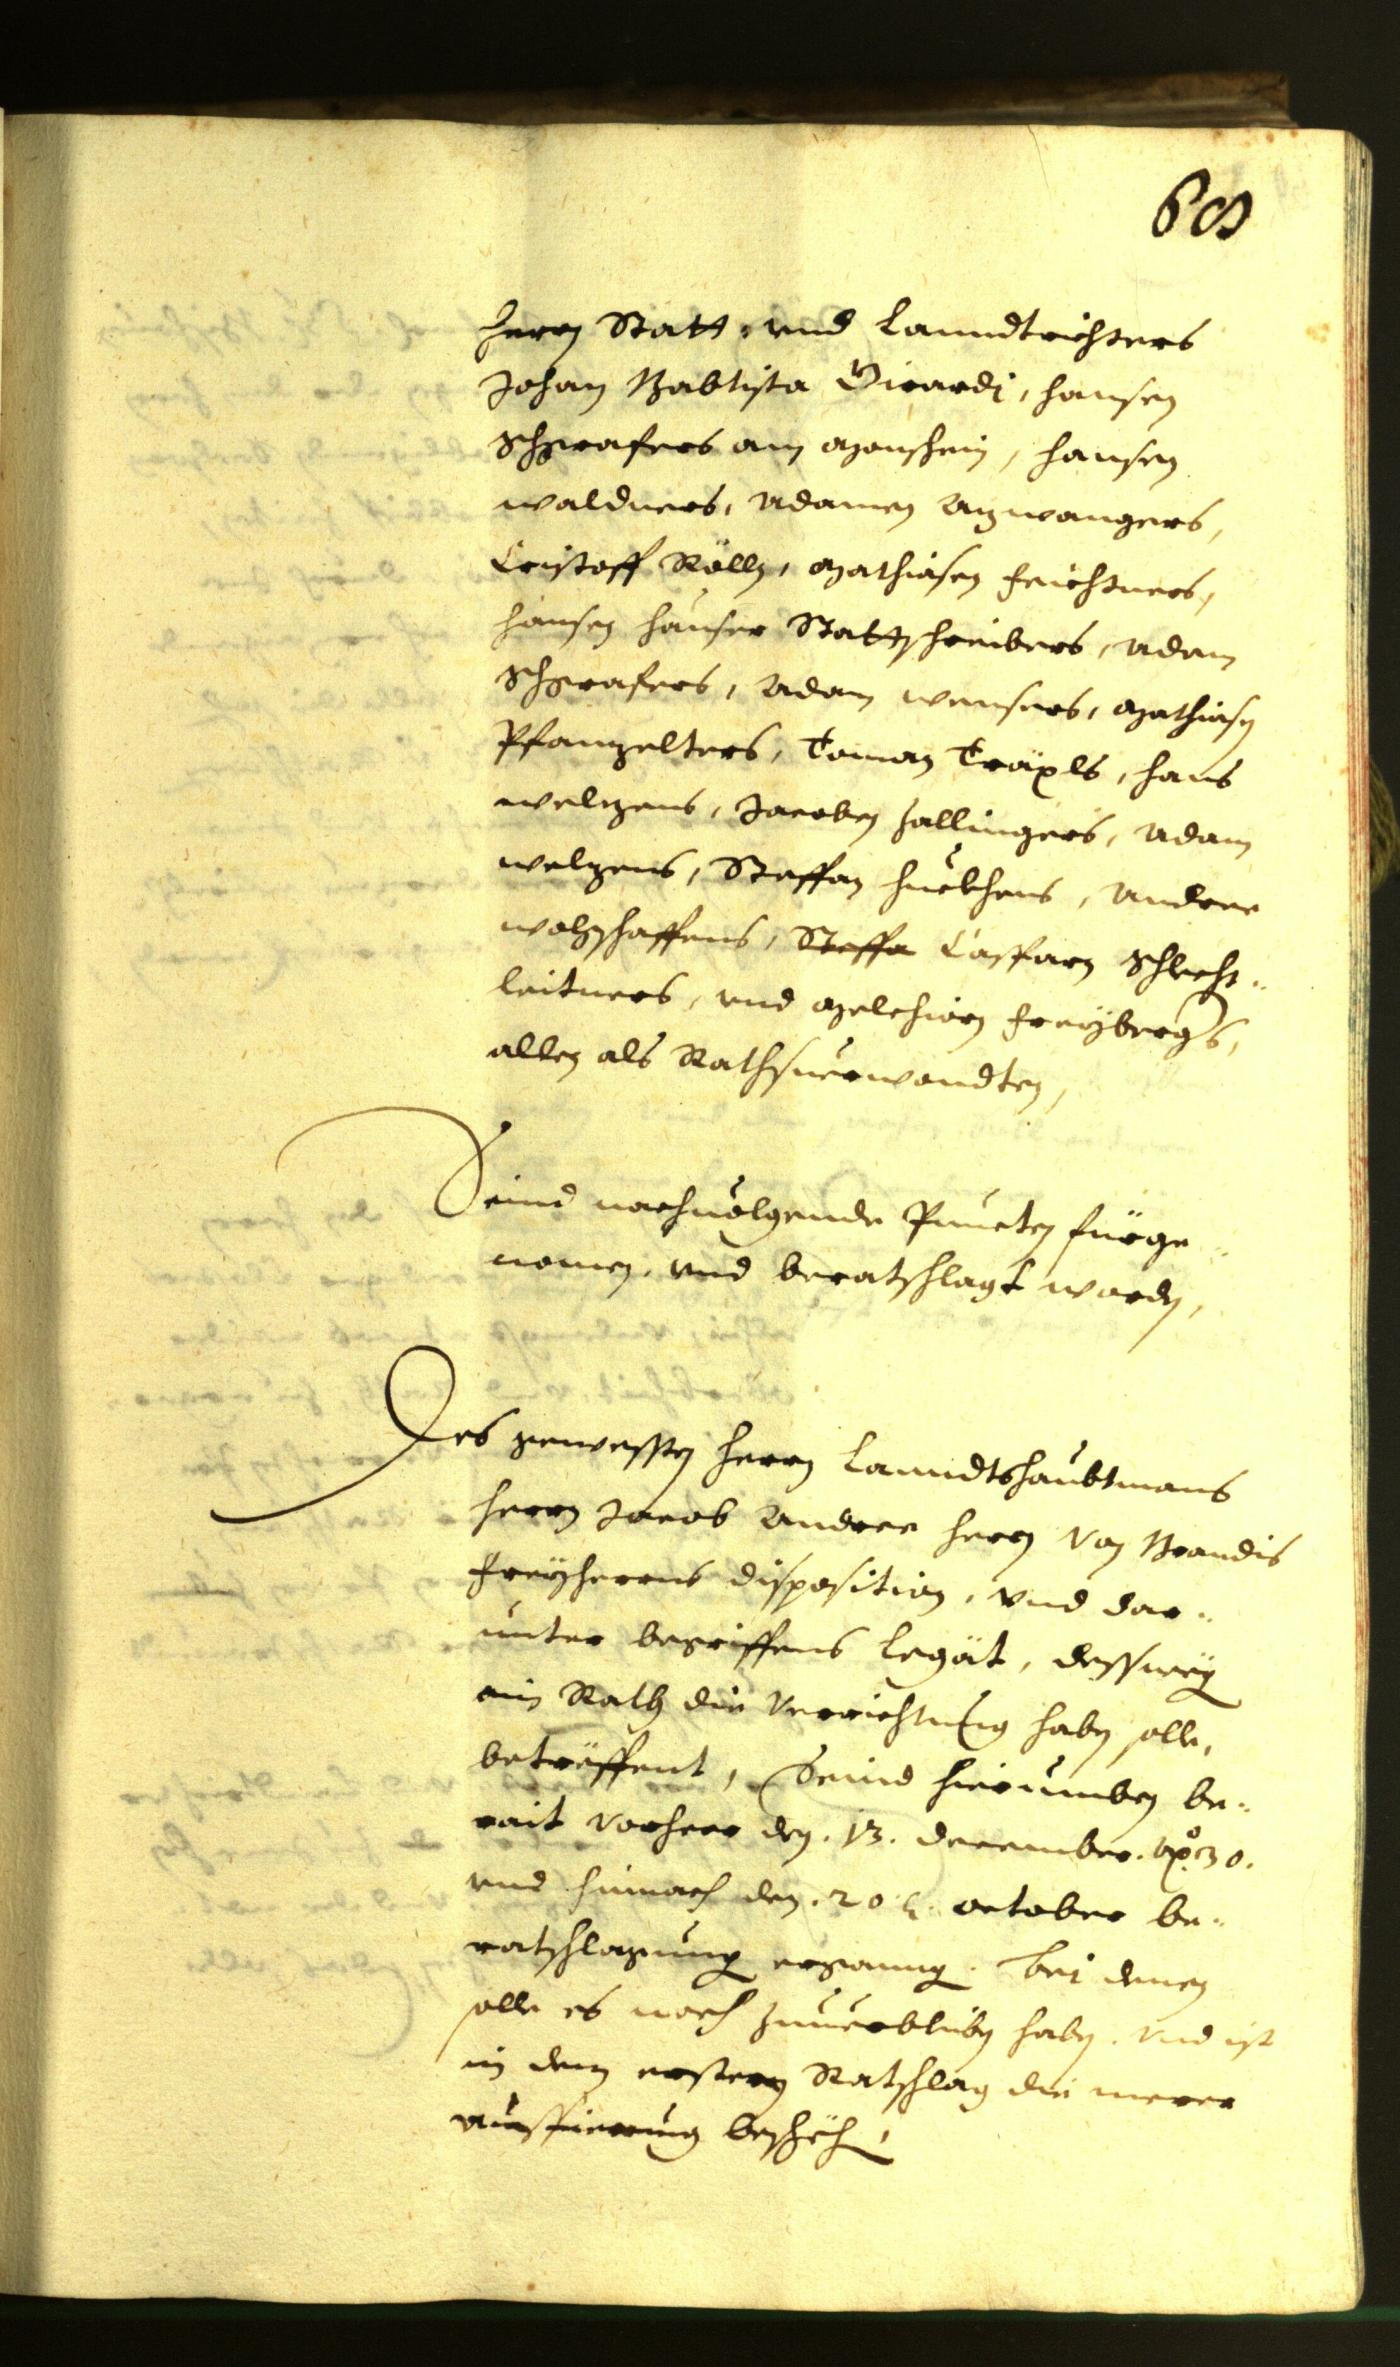 68
Herrn Statt- und Lanndtrichters
Johan Babtista Girardj, Hansen
Schgrafers am Monschein, Hansen
Waldners, Adamen Anwangers,
Cristoff Rölln, Mathiasen Feichtners,
Hansen Hauser Stattschreibers, Adam
Schgrafers, Adam Wensers, Mathiasn
Pfanzelters, Toman Träxls, Hans
Welzens, Jacoben Zallingers, Adam
Welzens, Steffan Huebhens, Andree
Wolzschaffens, Steffa Casparn Schlecht-
leitners, und Melchiorn Freybergs,
allen als Rathsuerwandten,
Seind nachuolgende Puncten fürge-
nomen, und beratschlagt worden,
Des gewessten Herrn Lanndtshaubtmans
Herrn Jacob Andree Herrn von Brandis
Freyherrens disposition, und dar-
unter begriffens Legät, dessweg
ein Rath die Verrichtung haben solle,
betreffent, Seind hierumben be-
rait vorherr den .13. December. Aõ. 30.
und hinnach den .20. October be-
ratschlagung ergangen. bei denen
solle es noch zuuerbliben haben. Und ist
in dem erstern Ratschlag die merer
aussfierung beschehen.